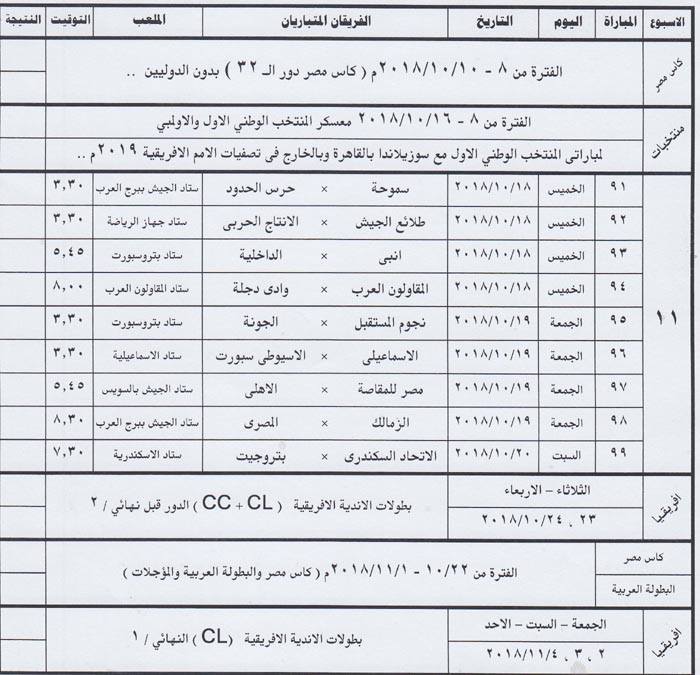 الاسبوع المباراة اليوم التاريخ الفريقان المتباريان الملعب التوقيت النتيجة
كاس مصر
الفترة من ٨ - ٢٠١٨/١٠/١٠م ( كاس مصر دور الـ ٣٢ ) بدون الدوليين ..
منتخبات
الفترة من ٨ - ٢٠١٨/١٠/١٦ معسكر المنتخب الوطني الاول والاولمبي
لمباراتى المنتخب الوطني الاول مع سوزيلاندا بالقاهرة وبالخارج فى تصفيات الامم الافريقية ٢٠١٩م ..
١١
٩١ الخميس ٢٠١٨/١٠/١٨ سموحة × حرس الحدود ستاد الجيش ببرج العرب ٣,٣٠
٩٢ الخميس ٢٠١٨/١٠/١٨ طلائع الجيش × الانتاج الحربى ستاد جهاز الرياضة ٣,٣٠
٩٣ الخميس ٢٠١٨/١٠/١٨ انبى × الداخلية ستاد بتروسبورت ٥,٤٥
٩٤ الخميس ٢٠١٨/١٠/١٨ المقاولون العرب × وادى دجلة ستاد المقاولون العرب ٨,٠٠
٩٥ الجمعة ٢٠١٨/١٠/١٩ نجوم المستقبل × الجونة ستاد بتروسبورت ٣,٣٠
٩٦ الجمعة ٢٠١٨/١٠/١٩ الاسماعيلى × الاسيوطى سبورت ستاد الاسماعيلية ٣,٣٠
٩٧ الجمعة ٢٠١٨/١٠/١٩ مصر للمقاصة × الاهلى ستاد الجيش بالسويس ٥,٤٥
٩٨ الجمعة ٢٠١٨/١٠/١٩ الزمالك × المصرى ستاد الجيش ببرج العرب ٨,٣٠
٩٩ السبت ٢٠١٨/١٠/٢٠ الاتحاد السكندرى × بتروجيت ستاد الاسكندرية ٧,٣٠
افريقيا
الثلاثاء - الاربعاء
٢٣ ، ٢٠١٨/١٠/٢٤
بطولات الاندية الافريقية ( CC + CL ) الدور قبل نهائي / ٢
كاس مصر
البطولة العربية
الفترة من ١٠/٢٢ - ٢٠١٨/١١/١م ( كاس مصر والبطولة العربية والمؤجلات )
افريقيا
الجمعة - السبت - الاحد
٢ ، ٣ ، ٢٠١٨/١١/٤
بطولات الاندية الافريقية (CL) النهائي / ١